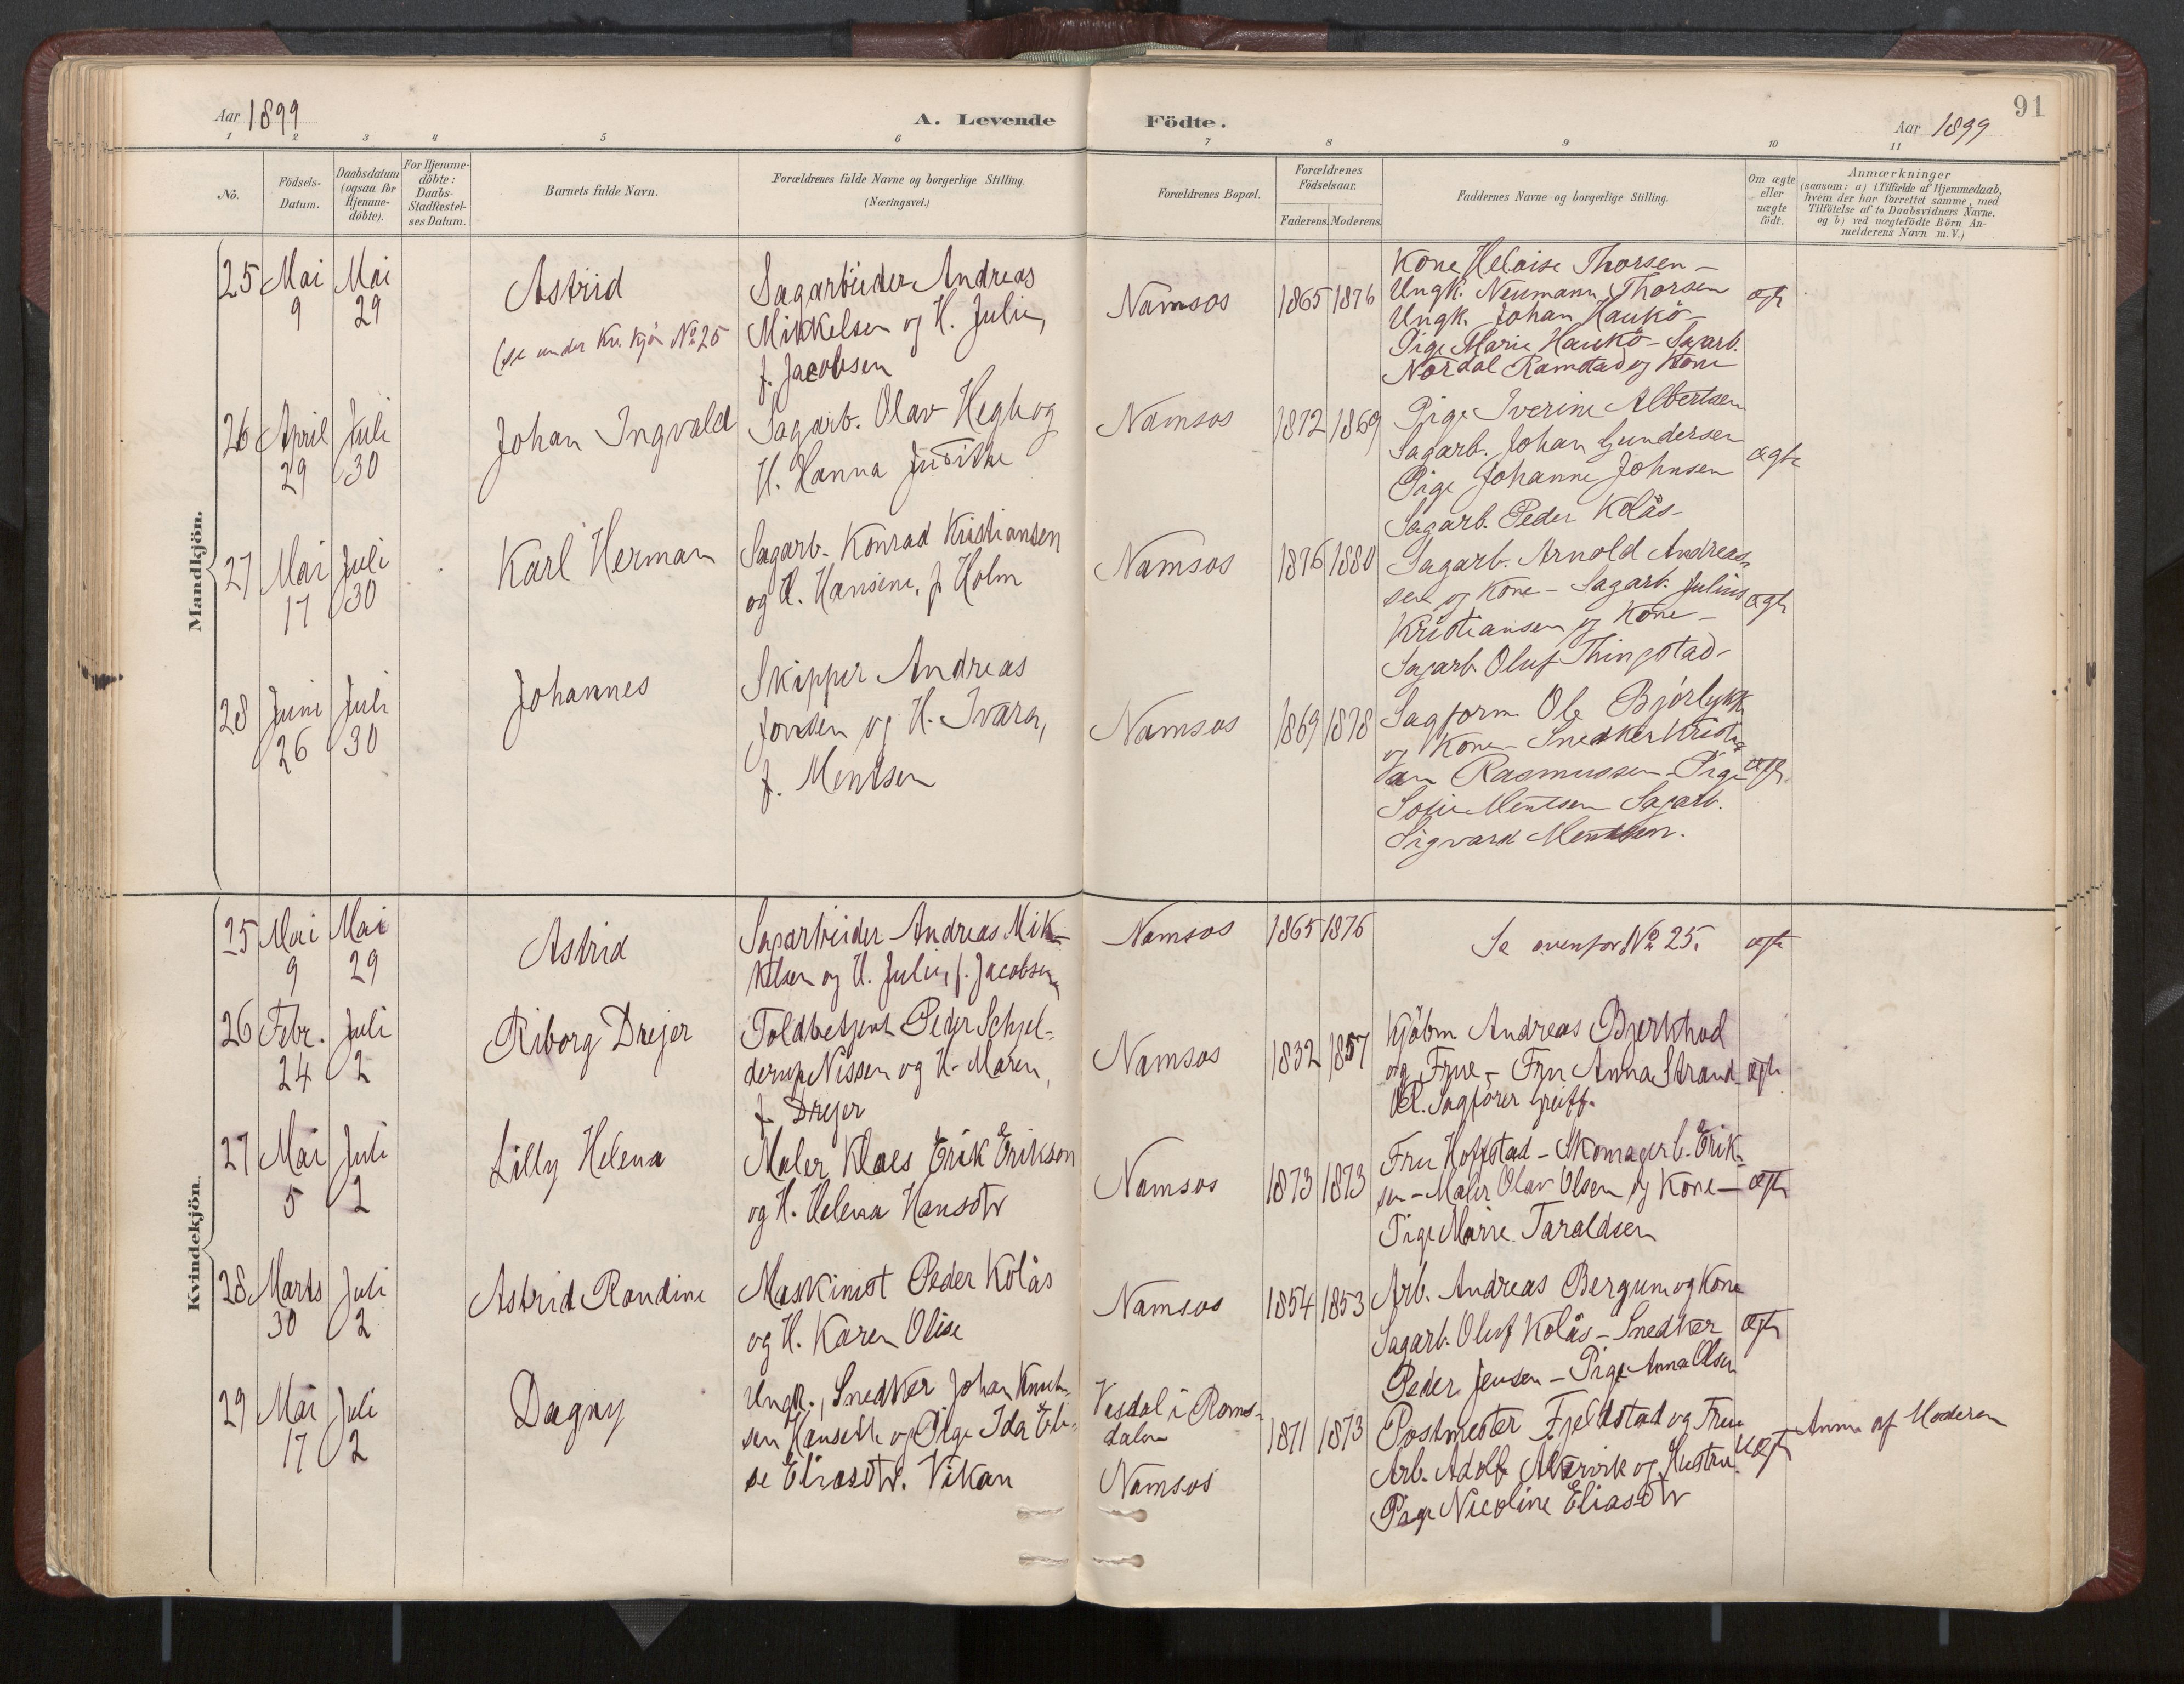 91
Aar 1899
A. Levende Födte.
Aar 1899
1 2 3 4 5 6 7 8 9 10 11
No.
Födsels-Datum.
Daabsdatum (ogsaa for Hjemme-döbte).
For Hjemme-döbte: Daabs-Stadfæstel-ses Datum.
Barnets fulde Navn.
Forældrenes fulde Navne og borgerlige Stilling.
(Næringsvei.)
Forældrenes Bopæl.
Forældrenes Födselsaar.
Faderens. Moderens.
Faddernes Navne og borgerlige Stilling.
Om ægte eller uægte födt.
Anmærkninger
(saasom: a) i Tilfælde af Hjemmedaab,
hvem der har forrettet samme, med
Tilföielse af to Daabsvidners Navne,
og b) ved uægtefödte Börn An-
melderens Navn m. V.)
Mandkjön.
25 Mai 9 Mai 29
Astrid
(se under Kv. kjön No 25
Sagarbeider Andreas
Mikkelsen og H. Julie,
f. Jacobsen
Namsos
1865 1876
Kone Heloise Thorsen –
Ungk. Neumann Thorsen
Ungk. Johan Haukö –
Pige Marie Haukö – Sagarb.
Nordal Ramstad og Kone
ægte
26 April 29 Juli 30
Johan Ingvald
Sagarb. Olav Hegh og
H. Hanna Judithe
Namsos
1872 1869
Pige Iverine Albertsen
Sagarb. Johan Gundersen
Pige Johanne Johnsen
Sagarb. Peder Kolås –
ægte
27 Mai 17 Juli 30
Karl Herman
Sagarb. Konrad Kristiansen
og H. Hansine, f. Holm
Namsos
1876 1880
Sagarb. Arnold Andreas-
sen og Kone – Sagarb. Julius
Kristiansen og Kone –
Sagarb. Oluf Thingstad –
ægte
28 Juni 26 Juli 30
Johannes
Skipper Andreas
Jonsen og H. Ivara,
f. Mentsen
Namsos
1869 1878
Sagform. Ole Bjørlykk
og Kone – Snedker Kristi-
an Rasmussen – Pige
Sofie Mentsen Sagarb.
Sigvard Mentsen.
ægte
Kvindekjön.
25 Mai 9 Mai 29
Astrid
Sagarbeider Andreas Mik-
kelsen og H. Julie, f. Jacobsen
Namsos
1865 1876
Se ovenfor No 25.
ægte
26 Febr. 24 Juli 2
Riborg Drejer
Toldbetjent Peder Schjel-
derup Nissen og H. Maren,
f. Drejer
Namsos
1832 1857
Kjöbm Andreas Bjerkhod
og Frue – Fru Anna Strand
O.R. Sagförer Greiff.
ægte
27 Mai 5 Juli 2
Lilly Helena
Maler Klaes Erik Erikson
og H. Helena Hansdtr
Namsos
1873 1873
Fru Hoffstad – Skomagerb. Erik-
sen – Maler Olav Olsen og Kone –
Pige Marie Taraldsen
ægte
28 Marts 30 Juli 2
Astrid Randine
Maskinist Peder Kolås
og H. Karen Olise
Namsos
1854 1853
Arb. Andreas Bergum og Kone
Sagarb. Oluf Kolås – Snedker
Peder Jensen – Pige Anna Olsen
ægte
29 Mai 17 Juli 2
Dagny
Ungk., Snedker Johan Knut-
sen Hanseth og Pige Ida Eli-
se Eliasdtr. Vikan
Vesdal i Roms-
dalen
Namsos
1871 1873
Postmester Fjeldstad og Frue
Arb. Adolf Altervik og Hustru
Pige Nicoline Eliasdtr
uægte
Anm. af Moderen